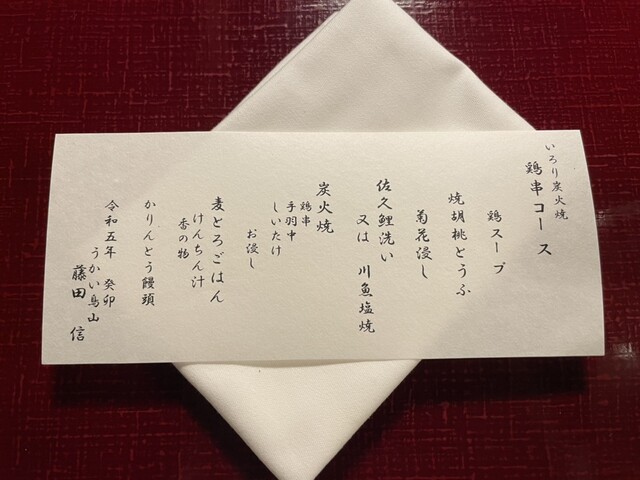 いろり炭火焼
鶏串コース
鶏スープ
焼胡桃どうふ
菊花浸し
佐久鯉洗い
又は 川魚塩焼
炭火焼
鶏串
手羽中
しいたけ
お浸し
麦とろごはん
けんちん汁
香の物
かりんとう饅頭
令和五年 癸卯
うかい鳥山
藤田 信